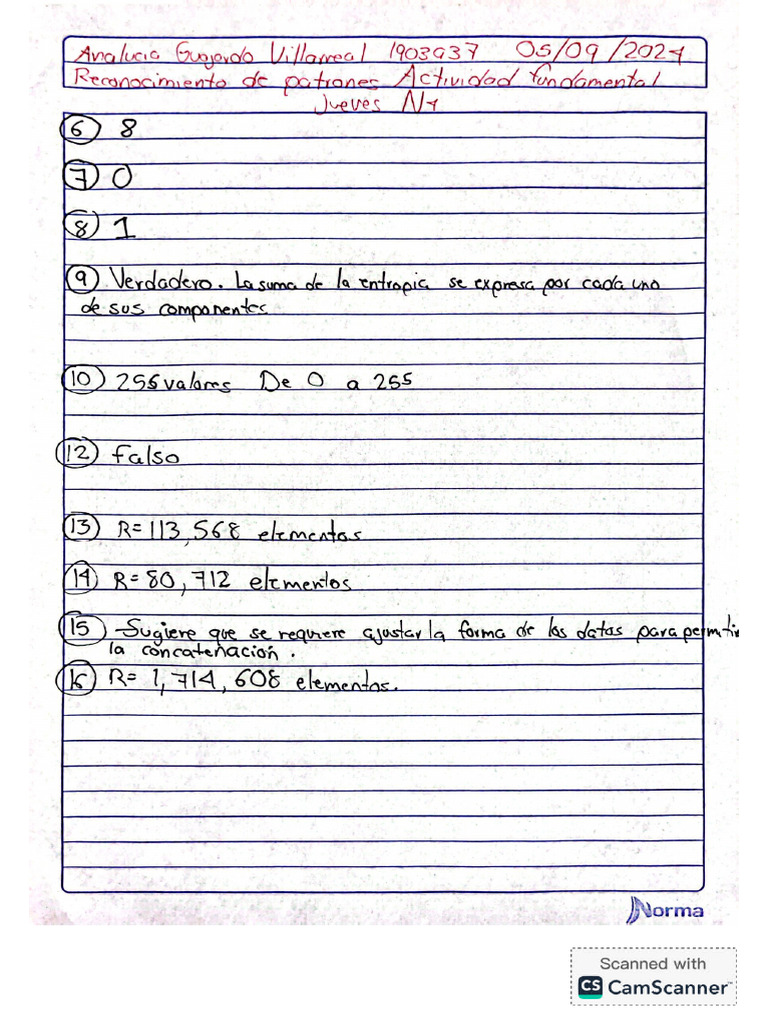 Analucia Guajardo Villarreal 1903937 05/09/2024
Reconocimiento de patrones Actividad fundamental
Jueves N4
6 8
7 0
8 1
9 Verdadero. La suma de la entropia se expresa por cada uno
de sus componentes
10 255 valores De 0 a 255
12 falso
13 R=113,568 elementos
14 R=80,712 elementos
15 -Sugiere que se requiere ajustar la forma de los datos para permitir
la concatenación.
16 R= 1,714,608 elementos.
Norma
Scanned with
CS CamScanner